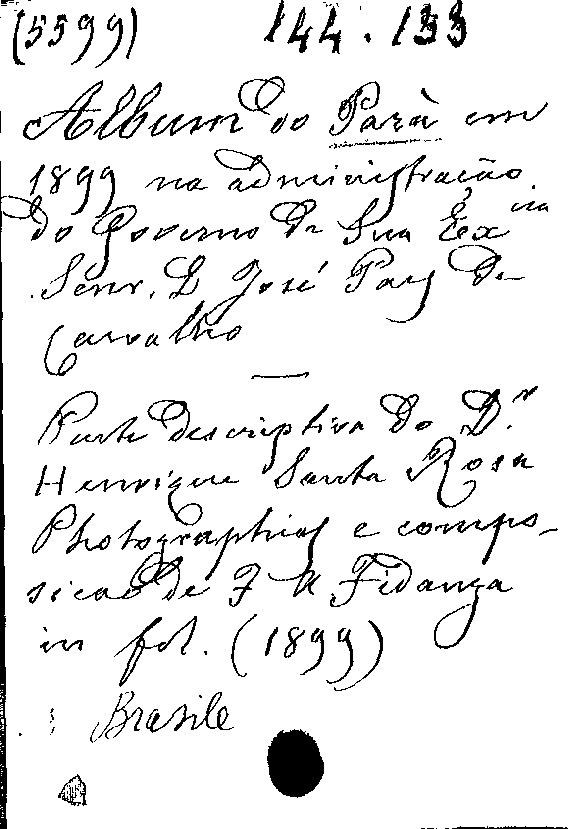 (5599) 144.133
Album do Parà em
1899 na administração
do Governo de Sua Excia
Senr. D José Paes de
Carvalho
—
Parte descriptiva do Dr
Henrique Santa Rosa
Photographias e compo-
sicao de F A Fidanza
in fol. (1899)
Brasile